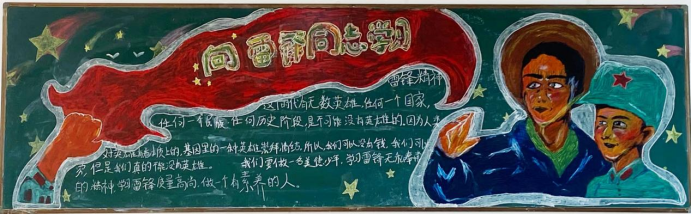 向雷锋同志学习
雷锋精神
这个时代有无数英雄,任何一个国家,
任何一个民族 任何历史阶段,是不可能没有英雄的,因为人
对英雄 基因里的一种英雄崇拜情结。所以,我们可以没有钱,我们可以
但是我们真的不能没有英雄。 我们要做一名美德少年,学习雷锋无私奉
的精神,学习雷锋 做一个有素养的人。